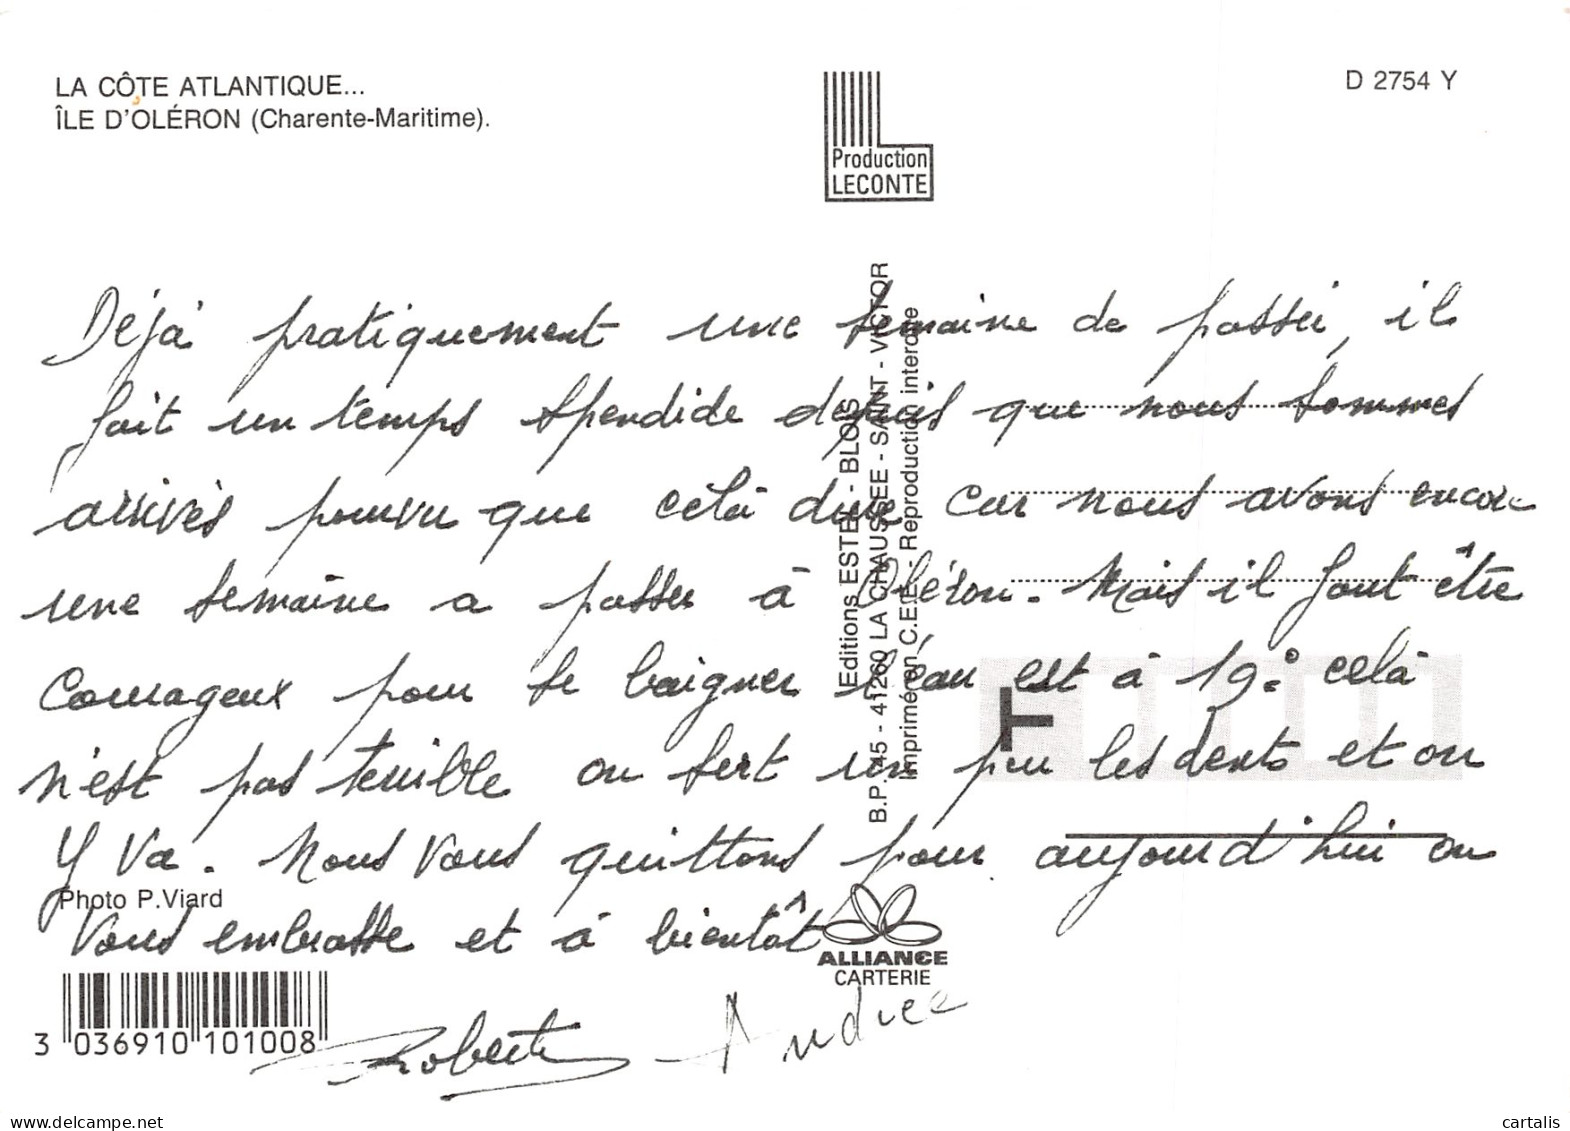 LA CÔTE ATLANTIQUE...
ÎLE D'OLÉRON (Charente-Maritime).
D 2754 Y
Production
LECONTE
Editions ESTEL - BLOIS
B.P. 45 - 41260 LA CHAUSSEE - SAINT - VICTOR
Imprimé en C.E.E. - Reproduction interdite
Déjà pratiquement une semaine de passée, il
fait un temps splendide depuis que nous sommes
arrivés pourvu que celà dure car nous avons encore
une semaine a passer à Oléron. Mais il faut être
Courageux pour se baigner l'eau est à 19° celà
n'est pas terrible on sert un peu les dents et on
Y Va. Nous Vous quittons pour aujourd'hui on
Vous embrasse et à bientôt
T
Photo P.Viard
ALLIANCE
CARTERIE
3 036910 101008
Roberte Andrée
cartalis
www.delcampe.net